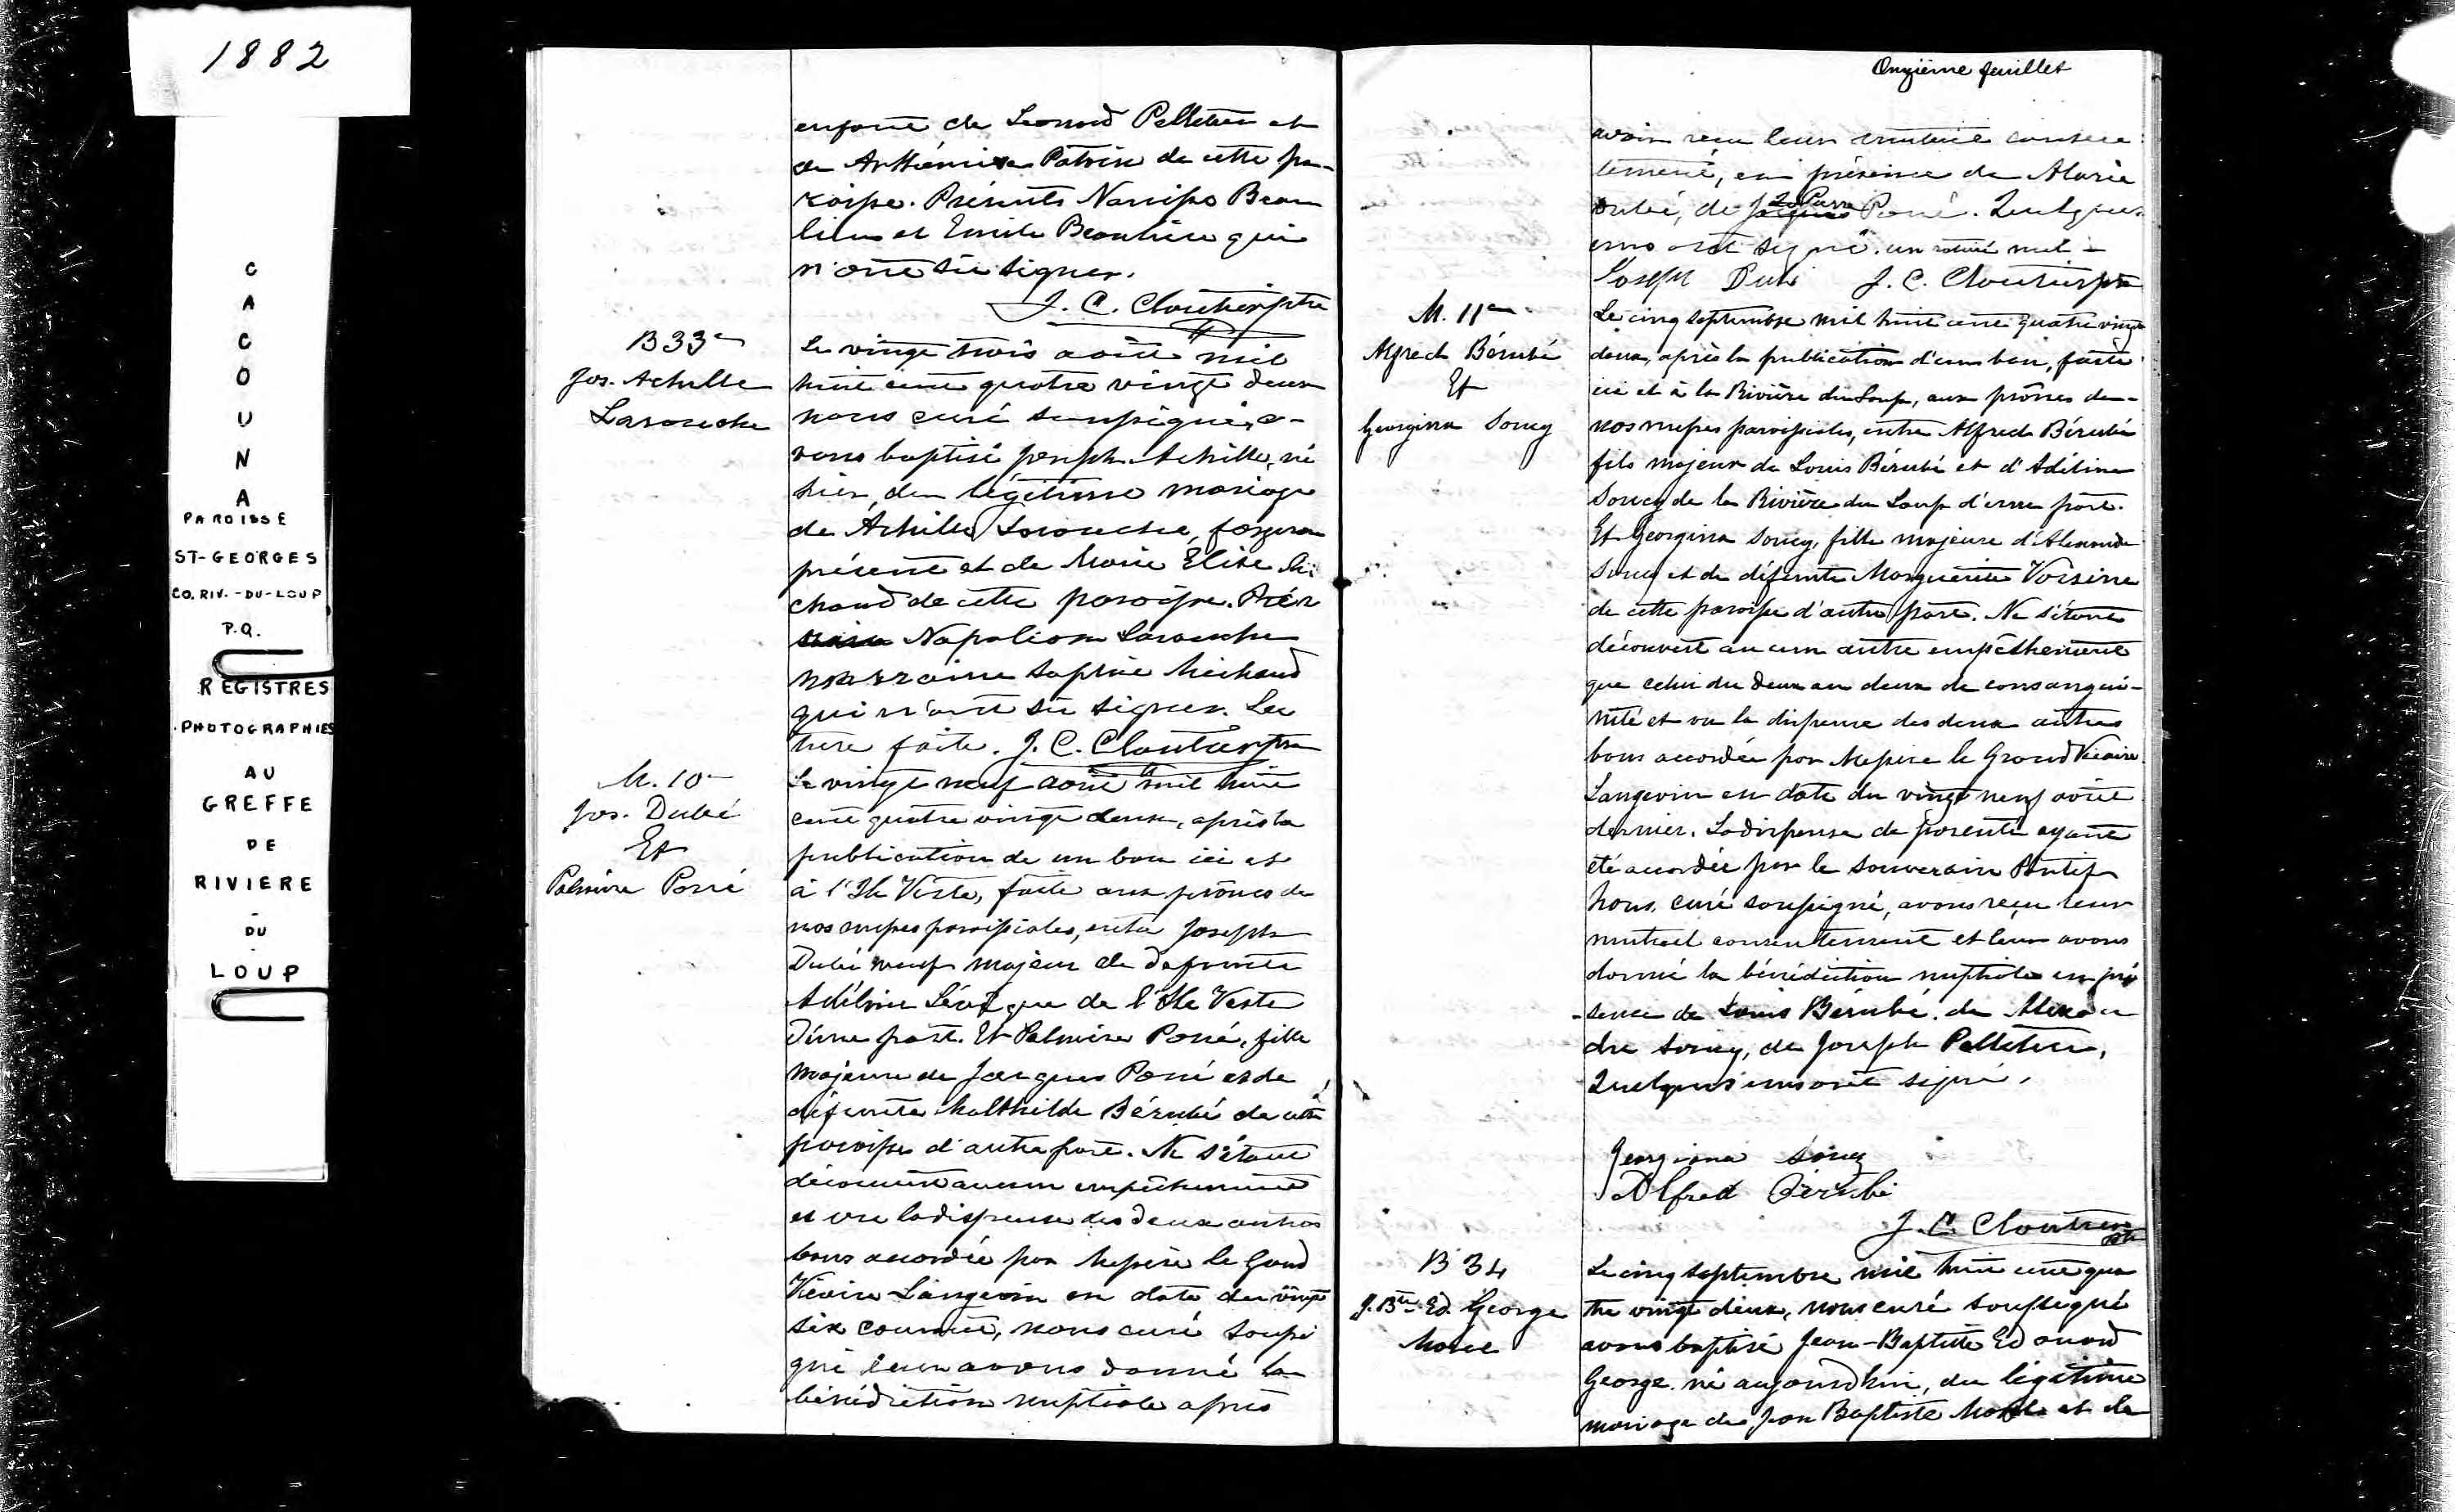 1882
C
A
C
O
U
N
A
PAROISSE
ST-GEORGES
CO. RIV.-DU-LOUP
P.Q.
REGISTRES
PHOTOGRAPHIES
AU
GREFFE
DE
RIVIERE
-
DU
-
LOUP
enfant de Leonard Pelletier et
de Arthémise Patoine de cette pa-
roisse. Présents Narcisse Beau
lieu et Emile Beaulieu qui
n'ont su signer.
J. C. Cloutier ptre
B 33e
Jos. Achille
Larouche
Le vingt trois août mil
huit cent quatre vingt deux
nous curé soussigné, a-
vons baptisé Joseph Achille, né
hier, du légitime mariage
de Achille Larouche, forgeron
présent et de Marie Elise Mi-
chaud de cette paroisse. Parr
Napoléon Larouche
marraine Sophie Michaud
qui n'ont su signer. Lec
ture faite. J. C. Cloutier ptre
M. 10e
Jos. Dubé
Et
Palmire Porré
Le vingt neuf août mil huit
cent quatre vingt deux, après la
publication de un ban ici et
à l'Ile Verte, faite aux prônes de
nos messes paroissiales, entre Joseph
Dubé veuf majeur de defunte
Adéline Lévèque de l'Ile Verte
d'une part. Et Palmire Porré, fille
majeure de Jacques Porré et de
défunte Mathilde Bérubé de cette
paroisse d'autre part. Ne s'étant
découvert aucun empêchement
et vu la dispense des deux autres
bans accordée par Messire le Grand
Vicaire Langevin en date du vingt
six courant, nous curé soussi
gné leur avons donné la
bénédiction nuptiale après
Onzième feuillet
avoir reçu leur mutuel consen
tement, en présence de
Dubé, de Jacques Porré. Quelques
uns ont signé. un mot nul -
Joseph Dubé J. C. Cloutier ptre
M. 11e
Alfred Bérubé
Et
Georgina Soucy
Le cinq septembre mil huit cent quatre vingt
deux, après la publication d'un ban, faite
ici et à la Rivière du Loup, aux prônes de
nos messes paroissiales, entre Alfred Bérubé
fils majeur de Louis Bérubé et d'Adéline
Soucy de la Rivière du Loup d'une part.
Et Georgina Soucy, fille majeure d'Alexandre
Soucy et de défunte Marguerite Voisine
de cette paroisse d'autre part. Ne s'étant
découvert aucun autre empêchement
que celui du deux au deux de consangui-
nité et vu la dispense des deux autres
bans accordée par Messire le Grand Vicaire
Langevin en date du vingt neuf août
dernier. La dispense de parenté ayant
été accordée par le Souverain Pontif
Nous, curé soussigné, avons reçu leur
mutuel consentement et leur avons
donné la bénédiction nuptiale en pré
-sence de Louis Bérubé, de Alexan
dre Soucy, de Joseph Pelletier,
Quelques uns ont signé.
Georgiana Soucy
Alfred Bérubé
J. C. Cloutier ptre
B 34
J. Bte Ed. George
Morel
Le cinq septembre mil huit cent qua
tre vingt deux, nous curé soussigné
avons baptisé Jean-Baptiste Edouard
George né aujourd'hui, du légitime
mariage de Jean Baptiste Morel et de